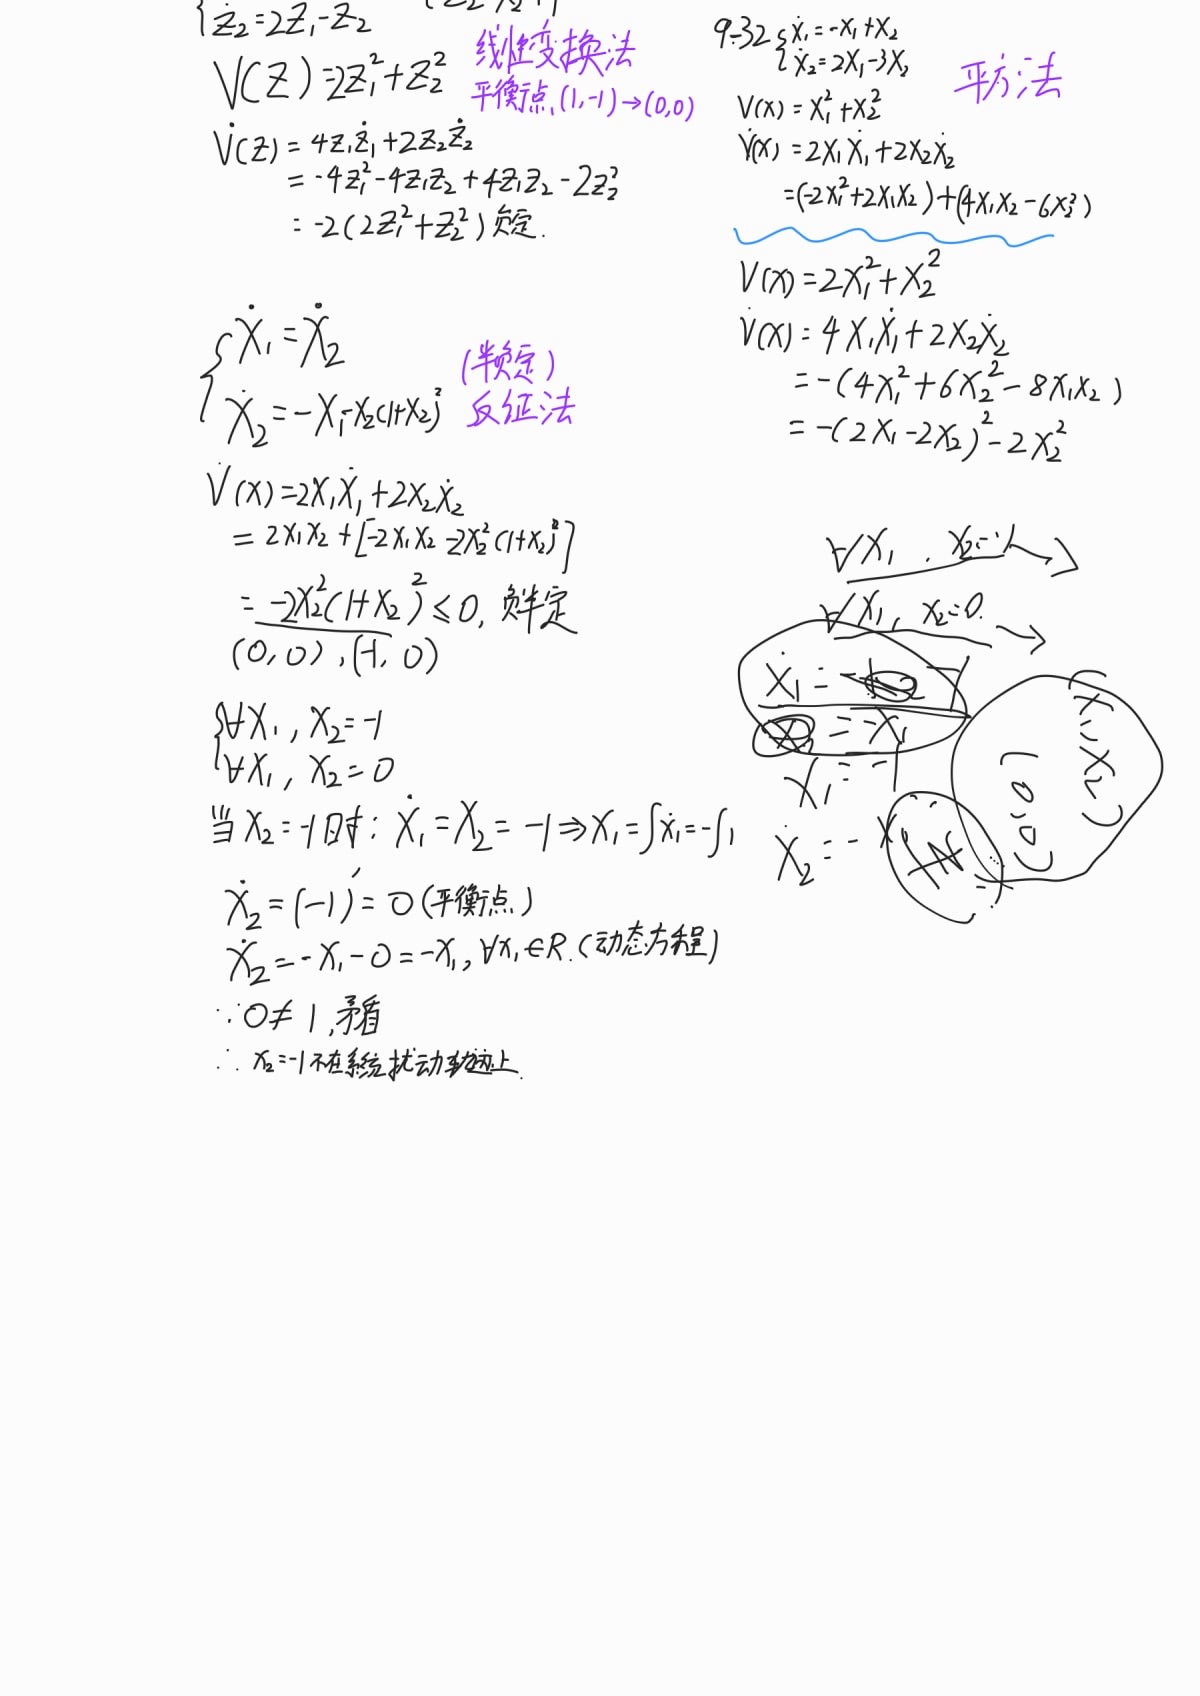 ż₂=2z₁-z₂
V(z)=2z₁²+z₂²
线性变换法
平衡点(1,-1)→(0,0)
V̇(z)=4z₁ż₁+2z₂ż₂
=-4z₁²-4z₁z₂+4z₁z₂-2z₂²
=-2(2z₁²+z₂²)负定.
ẋ₁=ẋ₂
ẋ₂=-x₁-x₂(1+x₂)²
(半负定)
反征法
V̇(x)=2x₁ẋ₁+2x₂ẋ₂
=2x₁x₂+[-2x₁x₂-2x₂²(1+x₂)²]
=-2x₂²(1+x₂)²≤0,负半定
(0,0),(-1,0)
∀x₁,x₂=-1
∀x₁,x₂=0
当x₂=-1时:ẋ₁=x₂=-1⇒x₁=∫ẋ₁=-∫1
ẋ₂=(-1)′=0(平衡点)
ẋ₂=-x₁-0=-x₁,∀x₁∈R.(动态方程)
∵0≠1,矛盾
∴x₂=-1不在系统扰动轨迹上.
9-32 ẋ₁=-x₁+x₂
ẋ₂=2x₁-3x₂
平方法
V(x)=x₁²+x₂²
V̇(x)=2x₁ẋ₁+2x₂ẋ₂
=(-2x₁²+2x₁x₂)+(4x₁x₂-6x₂²)
V(x)=2x₁²+x₂²
V̇(x)=4x₁ẋ₁+2x₂ẋ₂
=-(4x₁²+6x₂²-8x₁x₂)
=-(2x₁-2x₂)²-2x₂²
∀x₁.x₂=-1→
∀x₁,x₂=0.→
ẋ₁=
=-x₁
x₁=-1
ẋ₂=-x₁
(x₁,x₂)
(0,0)